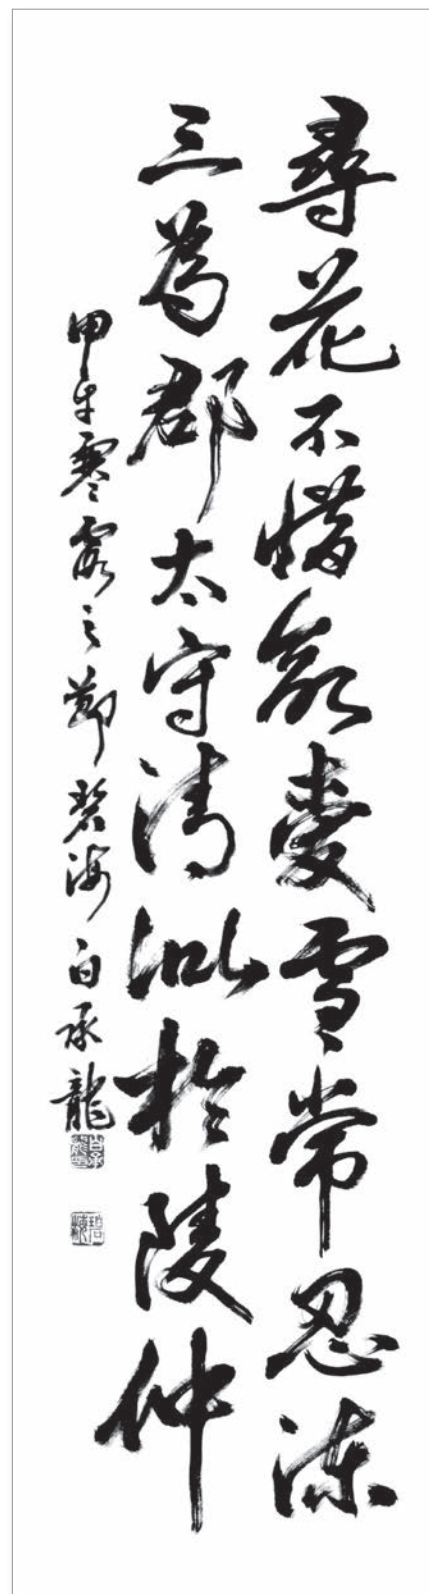 尋花不惜命愛雪常忍凍
三為郡太守清似於陵仲
甲午寒露之節碧海白承龍
碧海